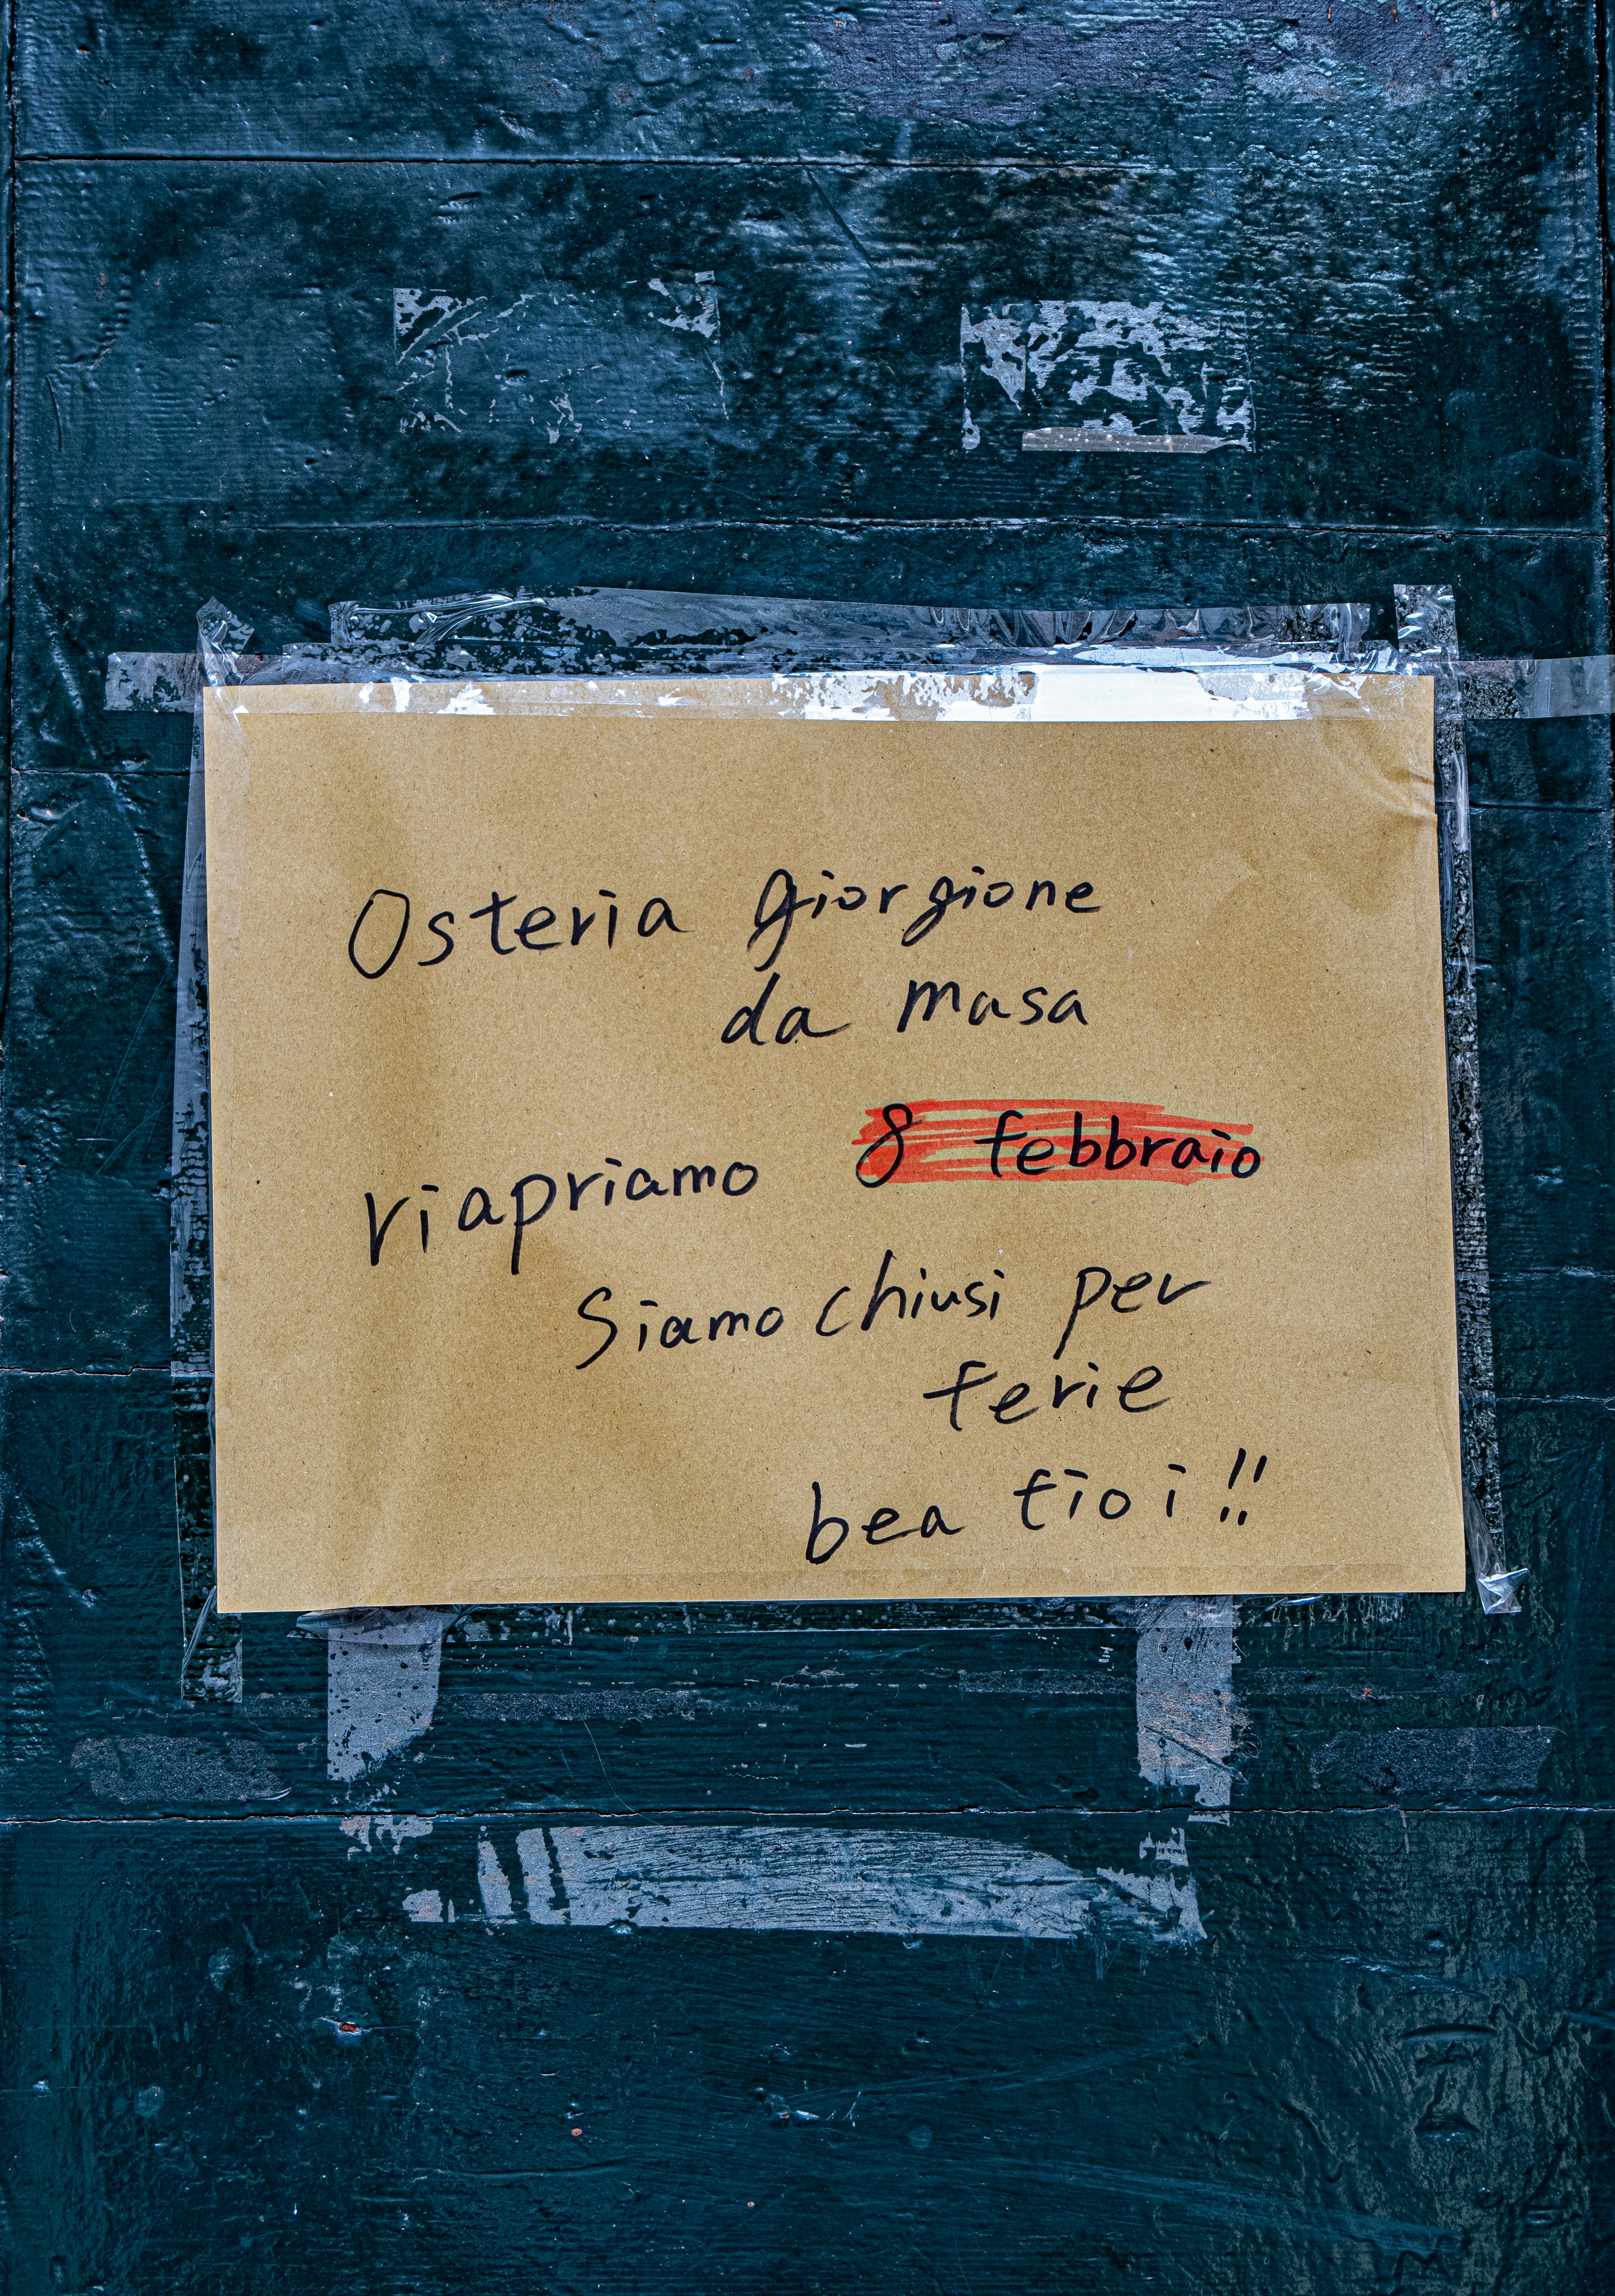 Osteria giorgione
da masa
riapriamo 8 febbraio
Siamo chiusi per
ferie
bea tioi!!